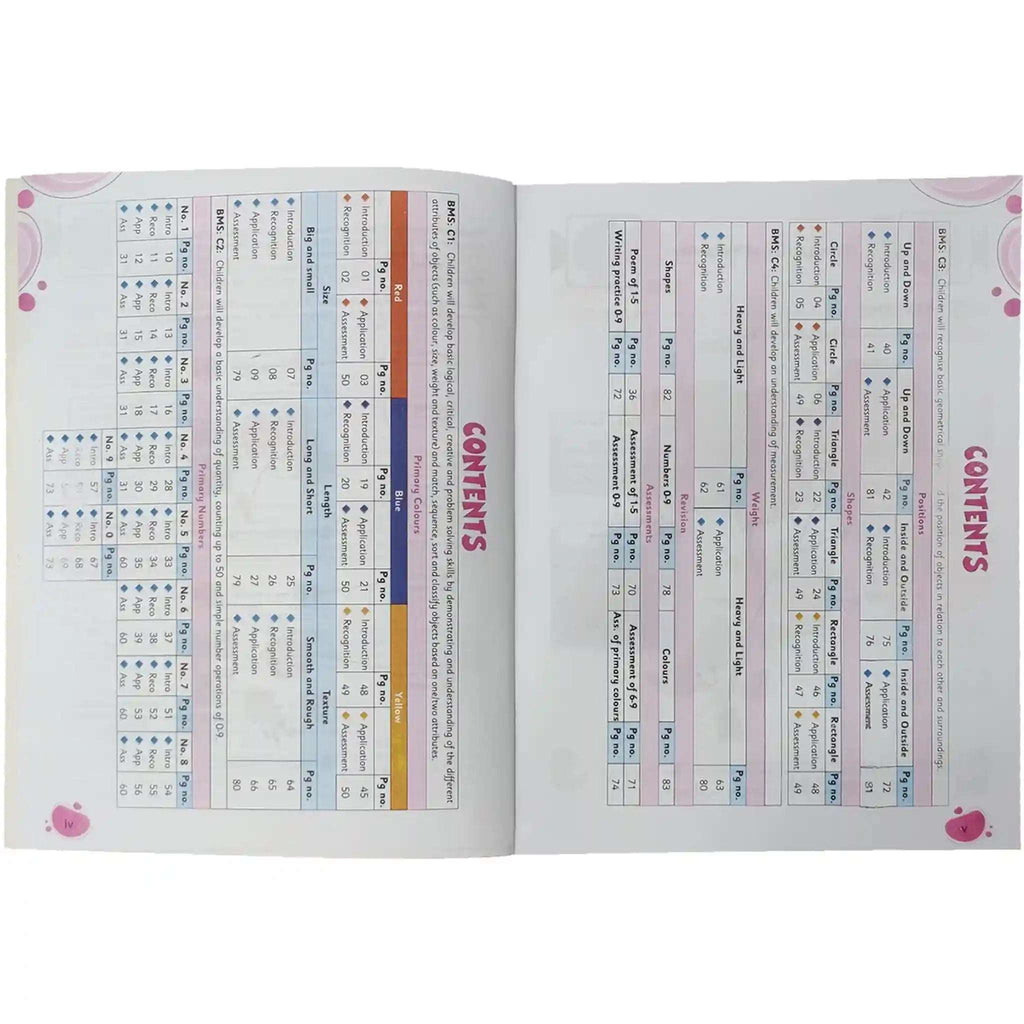 CONTENTS
Primary Colours
BMS: C1: Children will develop basic logical, critical, creative and problem solving skills by demonstrating and understanding of the different
attributes of objects (such as colour, size, weight and texture) and match, sequence, sort and classify objects based on one/two attributes.
Red Blue Yellow
Pg no. Pg no. Pg no. Pg no. Pg no. Pg no.
Introduction 01 Application 03 Introduction 19 Application 21 Introduction 48 Application 45
Recognition 02 Assessment 50 Recognition 20 Assessment 50 Recognition 49 Assessment 50
Size Length Texture
Big and small Pg no. Long and Short Pg no. Smooth and Rough Pg no.
Introduction 07 Introduction 25 Introduction 64
Recognition 08 Recognition 26 Recognition 65
Application 09 Application 27 Application 66
Assessment 79 Assessment 79 Assessment 80
BMS: C2: Children will develop a basic understanding of quantity, counting up to 50 and simple number operations of 0-9.
Primary Numbers
No. 1 Pg no. No. 2 Pg no. No. 3 Pg no. No. 4 Pg no. No. 5 Pg no. No. 6 Pg no. No. 7 Pg no. No. 8 Pg no.
Intro 10 Intro 13 Intro 16 Intro 28 Intro 33 Intro 37 Intro 51 Intro 54
Reco 11 Reco 14 Reco 17 Reco 29 Reco 34 Reco 38 Reco 52 Reco 55
App 12 App 15 App 18 App 30 App 35 App 39 App 53 App 56
Ass 31 Ass 31 Ass 31 Ass 31 Ass 60 Ass 60 Ass 60 Ass 60
No. 9 Pg no. No. 0 Pg no.
Intro 57 Intro 67
Reco Reco 68
App App 69
Ass 73 Ass 73
iv
CONTENTS
BMS: C3: Children will recognise basic geometrical the position of objects in relation to each other and surroundings.
Positions
Up and Down Pg no. Up and Down Pg no. Inside and Outside Pg no. Inside and Outside Pg no.
Introduction 40 Application 42 Introduction 75 Application 72
Recognition 41 Assessment 81 Recognition 76 Assessment 81
Shapes
Circle Pg no. Circle Pg no. Triangle Pg no. Triangle Pg no. Rectangle Pg no. Rectangle Pg no.
Introduction 04 Application 06 Introduction 22 Application 24 Introduction 46 Application 48
Recognition 05 Assessment 49 Recognition 23 Assessment 49 Recognition 47 Assessment 49
BMS: C4: Children will develop an understanding of measurement.
Weight
Heavy and Light Pg no. Heavy and Light Pg no.
Introduction 61 Application 63
Recognition 62 Assessment 80
Revision
Shapes Pg no. 82 Numbers 0-9 Pg no. 78 Colours Pg no. 83
Assessments
Poem of 1-5 Pg no. 36 Assessment of 1-5 Pg no. 70 Assessment of 6-9 Pg no. 71
Writing practice 0-9 Pg no. 72 Assessment 0-9 Pg no. 73 Ass: of primary colours Pg no. 74
v